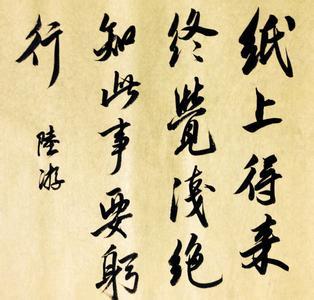 纸上得来
终觉浅绝
知此事要躬
行
陸游